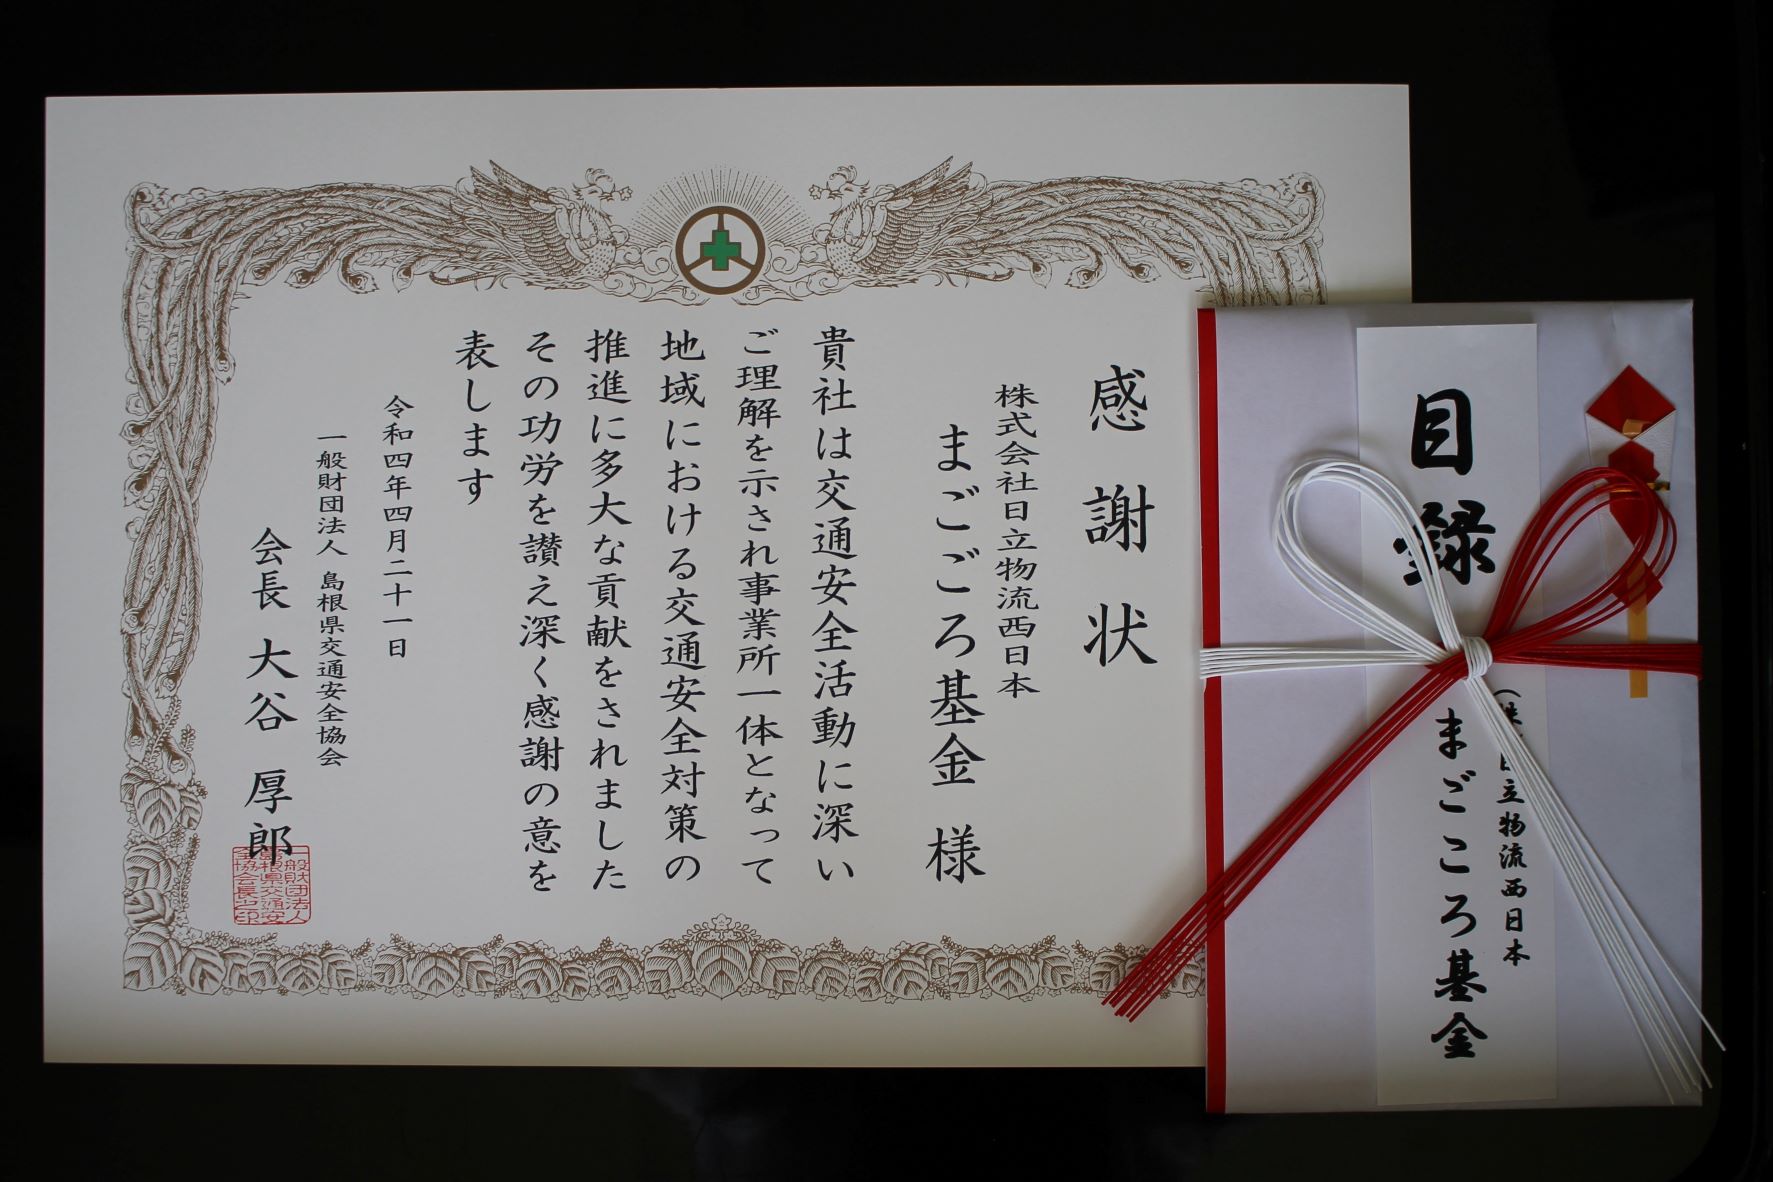 感謝状
株式会社日立物流西日本
まごごろ基金 様
貴社は交通安全活動に深い
ご理解を示され事業所一体となって
地域における交通安全対策の
推進に多大な貢献をされました
その功労を讃え深く感謝の意を
表します
令和四年四月二十一日
一般財団法人 島根県交通安全協会
会長 大谷 厚郎
一般財団法人
島根県交通安
全協会長之印
目録
（株）日立物流西日本
まごころ基金